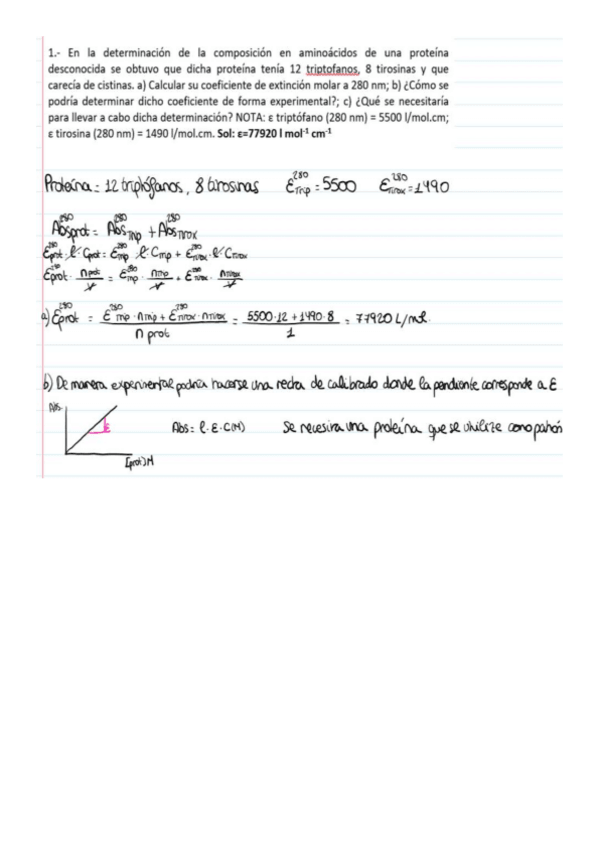 1.- En la determinación de la composición en aminoácidos de una proteína
desconocida se obtuvo que dicha proteína tenía 12 triptofanos, 8 tirosinas y que
carecía de cistinas. a) Calcular su coeficiente de extinción molar a 280 nm; b) ¿Cómo se
podría determinar dicho coeficiente de forma experimental?; c) ¿Qué se necesitaría
para llevar a cabo dicha determinación? NOTA: ε triptófano (280 nm) = 5500 l/mol.cm;
ε tirosina (280 nm) = 1490 l/mol.cm. Sol: ε=77920 l mol⁻¹ cm⁻¹
Proteína = 12 triptófanos, 8 tirosinas ε²⁸⁰Trip = 5500 ε²⁸⁰Tirox = 1490
Abs²⁸⁰prot = Abs²⁸⁰Trip + Abs²⁸⁰Tirox
ε²⁸⁰prot · l · Cprot = ε²⁸⁰Trp · l · Ctrp + ε²⁸⁰Tirox · l · Ctirox
ε²⁸⁰prot · nprot/V = ε²⁸⁰trp · ntrp/V + ε²⁸⁰tirox · ntirox/V
a) ε²⁸⁰prot = ε²⁸⁰trp · ntrp + ε²⁸⁰tirox · ntirox / n prot = 5500·12 + 1490·8 / 1 = 77920 L/mol
b) De manera experimental podría hacerse una recta de calibrado donde la pendiente corresponde a ε
Abs
ε
[prot] M
Abs = l · ε · C(M) Se necesita una proteína que se utilize como patrón